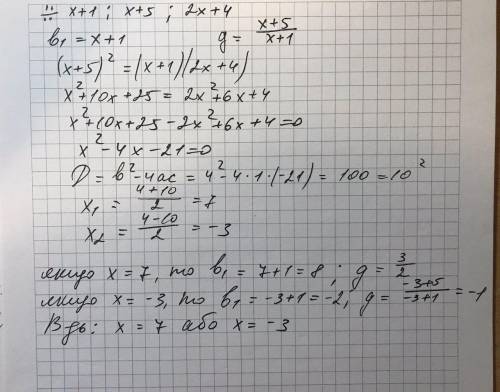 ∺ x+1 ; x+5 ; 2x+4
b₁ = x+1 g = (x+5)/(x+1)
(x+5)² = (x+1)(2x+4)
x²+10x+25 = 2x²+6x+4
x²+10x+25-2x²+6x+4=0
x²-4x-21=0
D = b²-4ac = 4²-4·1·(-21) = 100 = 10²
x₁ = (4+10)/2 = 7
x₂ = (4-10)/2 = -3
якщо x=7, то b₁ = 7+1=8 ; g = 3/2
якщо x=-3, то b₁ = -3+1=-2, g = (-3+5)/(-3+1) = -1
В-дь: x = 7 або x = -3